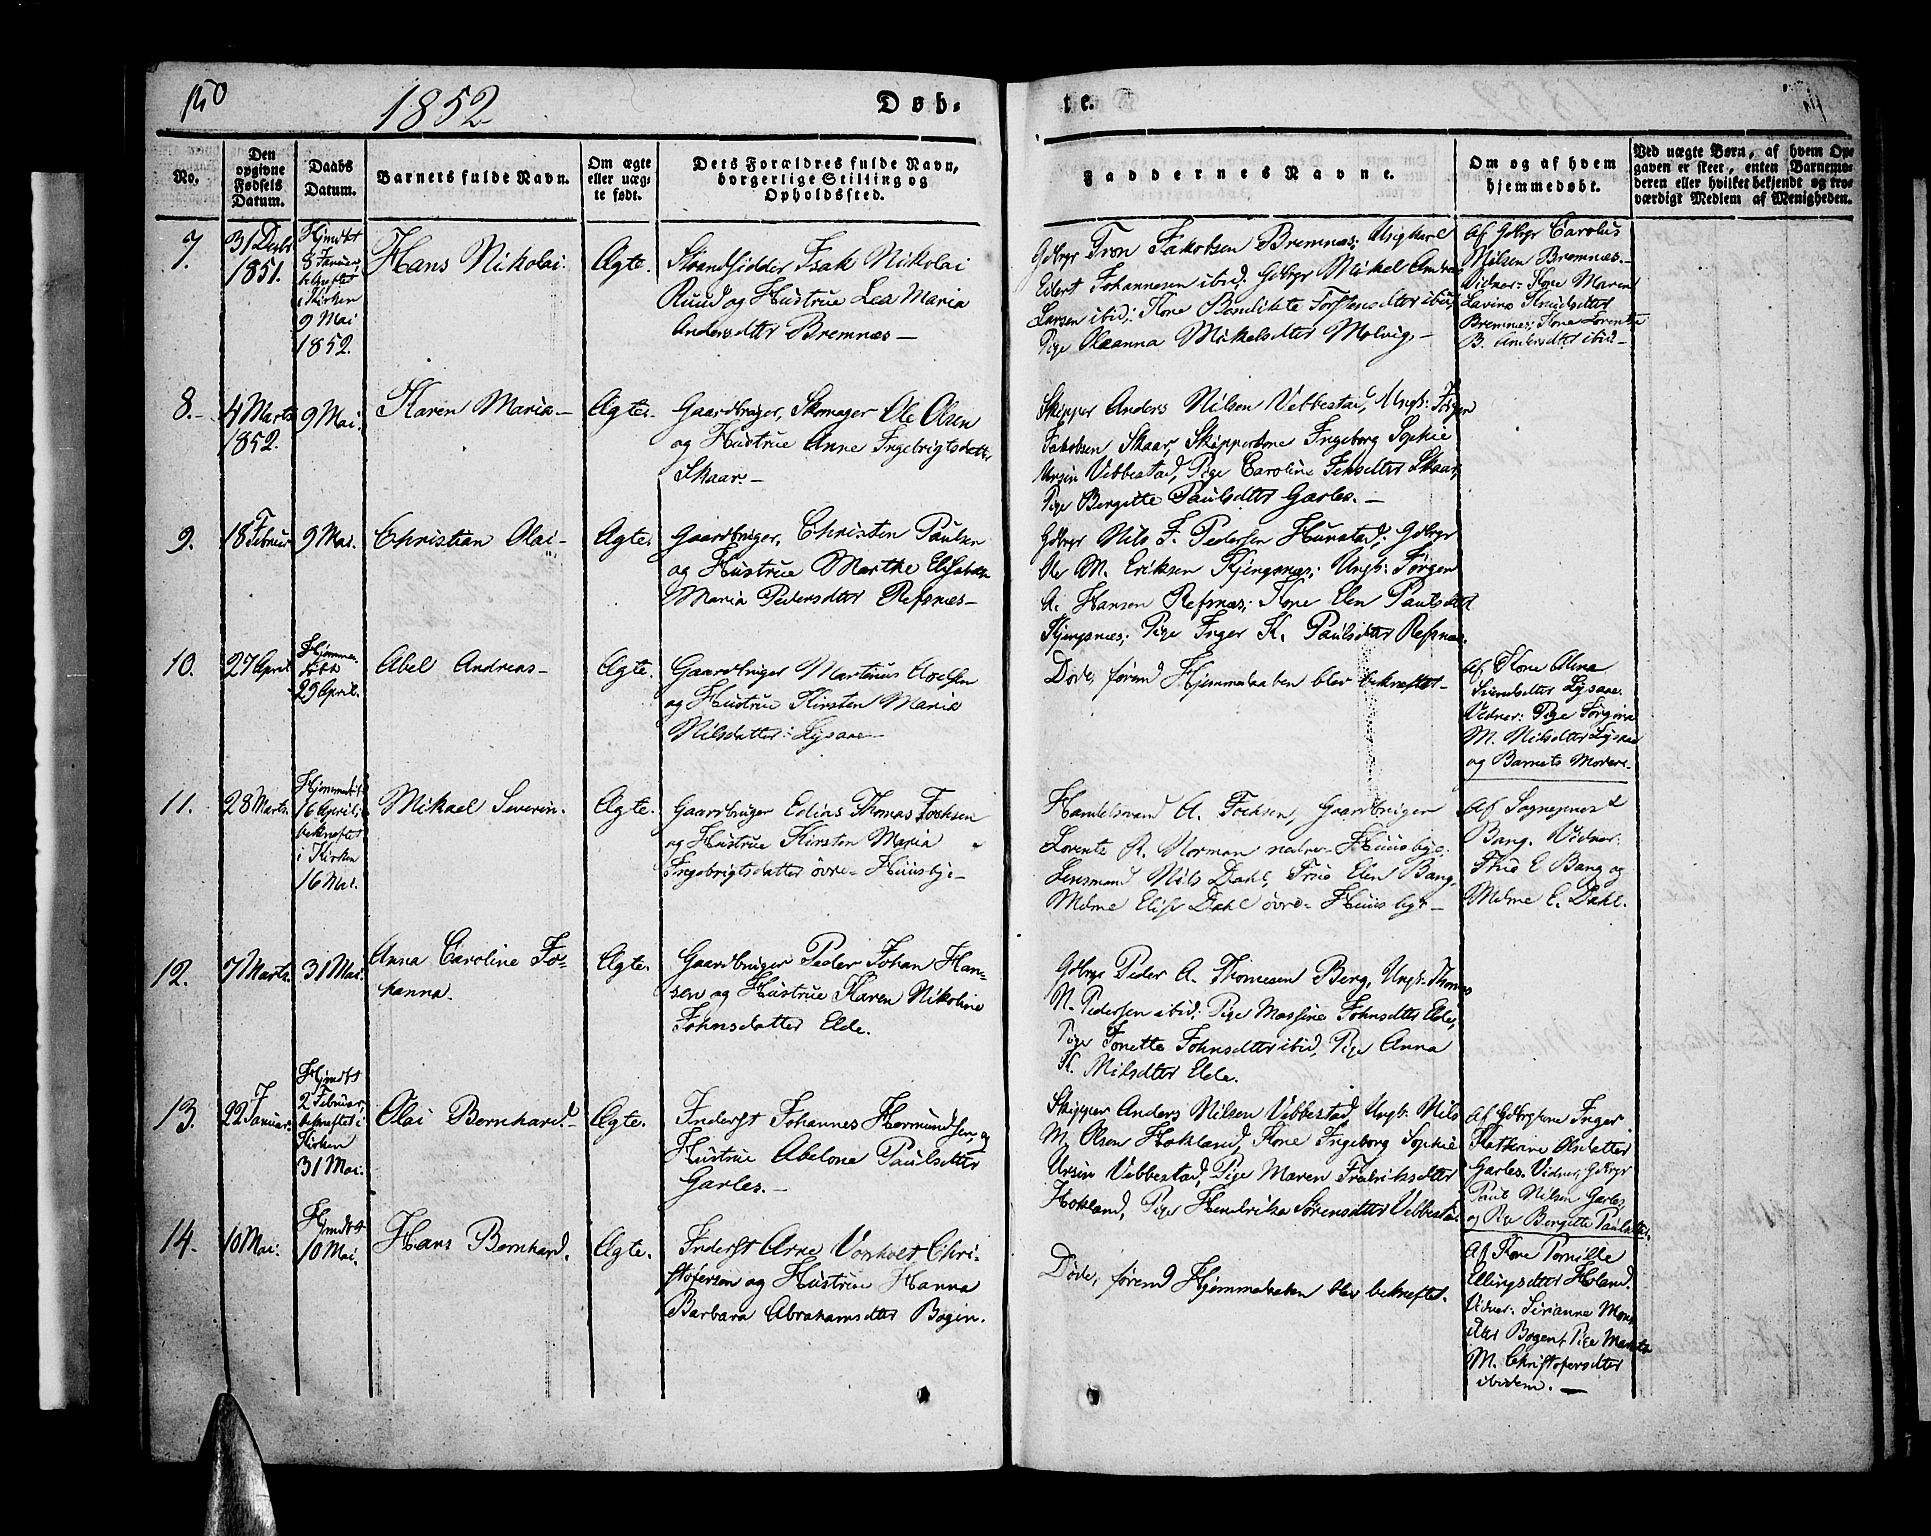 150
1852
Døb-
te.
No.
Den
opgivne
Fødsels
Datum.
Daabs
Datum.
Barnets fulde Navn.
Om ægte
eller uæg-
te født.
Dets Forældres fulde Navn,
borgerlige Stilling og
Opholdssted.
Faddernes Navne.
Om og af hvem
hjemmedøbt.
Ved uægte Børn, af hvem Op-
gaven er skeet, enten Barnemo-
deren eller hvilket bekjendt og tro-
værdigt Medlem af Menigheden.
7.
31 Decbr
1851.
Hjmdbt
8 Januar,
bekræftet
i Kirken
9 Mai
1852.
Hans Nikolai.
Ægte.
Strandsidder Isak Nikolai
Ruud og Hustrue Lea Maria
Andersdtter Bremnæs-
Gdbrgr Tron Jakobsen Bremnæs; Ungkarl
Edert Johannesen ibid; Gdbrgr Mikel Andreas
Larsen ibid; Kone Bendikte Torstensdtter ibid,
Pige Oleanna Mikelsdtter Melvig.-
Af Gdbrgr Carolus
Nilsen Bremnæs.-
Vidner: Kone Maren
Lavina Knudsdtter
Bremnæs; Kone Lorentze
B. Andersdtter ibid-
8.-
4 Marts
1852.
9 Mai.
Karen Maria-
Ægte.
Gaardbruger, Skomager Ole Olsen
og Hustrue Anne Ingebrigtsdatter
Skaar-
Skipper Anders Nilsen Vebbestad, Ungk: Jørgen
Jakobsen Skaar, Skipperkone Ingeborg Sophie
Ursin Vebbestad, Pige Caroline Jensdtter Skaar,
Pige Bergitte Paulsdtter Garles.-
9.
18 Februar
9 Mai.
Christian Olai-
Ægte.
Gaardbruger, Christen Paulsen
og Hustrue Marthe Elisabeth
Maria Pedersdtter Refsnæs-
Gdbrgr Nils F. Pedersen Hunstad; Gdbrgr
Ole M. Eriksen Kjengsnæs; Ungk: Jørgen
A. Hansen Refsnæs; Kone Elen Paulsdtter
Kjengsnæs; Pige Inger K. Paulsdtter Refsnæs.
10.
27 April
Hjemme-
døbt
29 April.
Abel Andreas-
Ægte.
Gaardbruger Martinus Axelsen
og Hustrue Kirsten Maria
Nilsdatter Lysaae-
Døde, førend Hjemmedaaben blev bekræftet-
Af Kone Olina
Simdsdtter Lysaae.
Vidner: Pige Jørgina
M. Nilsdtter Lysaae
og Barnets Modere-
11.
28 Marts.
Hjemmedøbt
16 April;
bekræftet
i Kirken
16 Mai.
Mikael Severin.
Ægte.
Gaardbruger Edias Thomas Fochsen
og Hustrue Kirsten Maria
Ingebrigtsdatter övre-Huusbye-
Handelsmand A. Fochsen, Gaardbruger
Lorentz R. Norman nedre-Huusbye,
Lensmand Nils Dahl, Frue Elen Bang,
Mdme Elise Dahl övre-Huusbye-
Af Sognepræst
Bang. Vidner:
Frue E Bang og
Mdme E. Dahl.
12.
7 Marts.
31 Mai.
Anna Caroline Jo-
hanna.
Ægte.
Gaardbruger Peder Johan Han-
sen og Hustrue Karen Nikoline
Johnsdatter Elde.
Gdbrgr Peder A. Thomesen Berg, Ungk: Thomas
N. Pedersen ibid; Pige Massine Johnsdtter Elde,
Pige Jonette Johnsdtter ibid, Pige Anna
K. Nilsdtter Elde.
13.
22 Januar.
Hjmdbt
2 Februar,
bekræftet i
Kirken
31 Mai.
Olai Bernhard.
Ægte.
Inderst Johannes Hermundsen, og
Hustrue Abelone Paulsdtter
Garles.-
Skipper Anders Nilsen Vebbestad, Ungk: Nils
M. Olsen Hokland, Kone Ingeborg Sophie
Ursin Vebbestad, Pige Maren Fredriksdtter
Hokland, Pige Hendrikke Sørensdtter Vebbestad.
Af Gdbrgrkone Inger
Kathrine Olsdatter
Garles. Vidner, Gdbrgr
Paul Nilsen Garles
og Pige Bergitte Paulsdtter
14.
10 Mai.
Hjmdbt
10 Mai.
Hans Bernhard.
Ægte.
Inderst Arne Vonholt Chri-
stofersen og Hustrue Hanna
Barbara Abrahamsdtter Bogen.
Døde, førend Hjemmedaaben blev bekræftet.
Af Kone Pernille
Ellingsdtter Holand.
Vidner: Sirianne Mons-
dtter Bogen, Pige Marith
M. Christofersdtter
ibidem.-